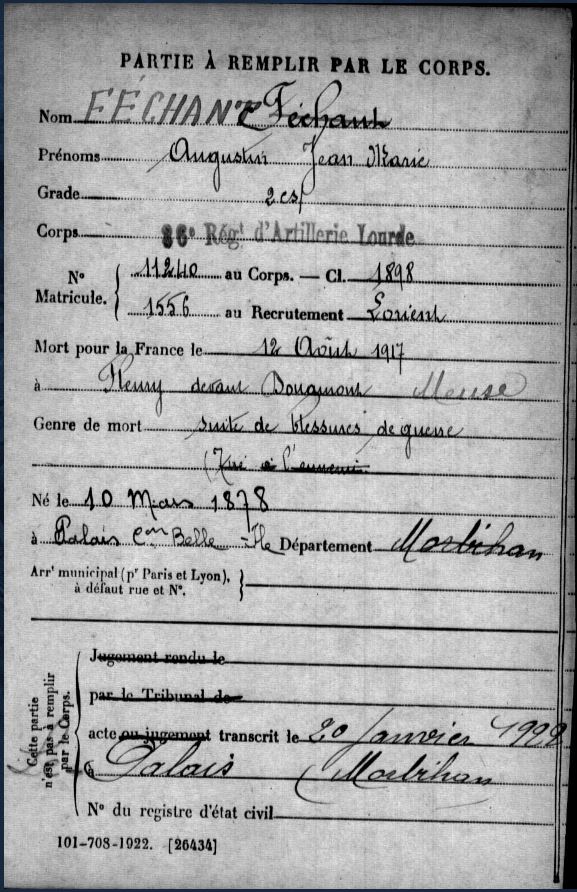 PARTIE À REMPLIR PAR LE CORPS.
Nom FÉCHANT Féchant
Prénoms Augustin Jean Marie
Grade 2 cs
Corps 86e Régt d'Artillerie Lourde
No Matricule. 11240 au Corps. — Cl. 1898
1556 au Recrutement Lorient
Mort pour la France le 12 Août 1917
à Fleury devant Douaumont Meuse
Genre de mort suite de blessures de guerre
(Tué à l'ennemi.
Né le 10 Mars 1878
à Palais Con Belle-Ile Département Morbihan
Arrt municipal (pr Paris et Lyon),
à défaut rue et No.
Cette partie n'est pas à remplir par le Corps.
Jugement rendu le
par le Tribunal de
acte ou jugement transcrit le 20 Janvier 1922
à Palais (Morbihan
No du registre d'état civil
101-708-1922. [26434]